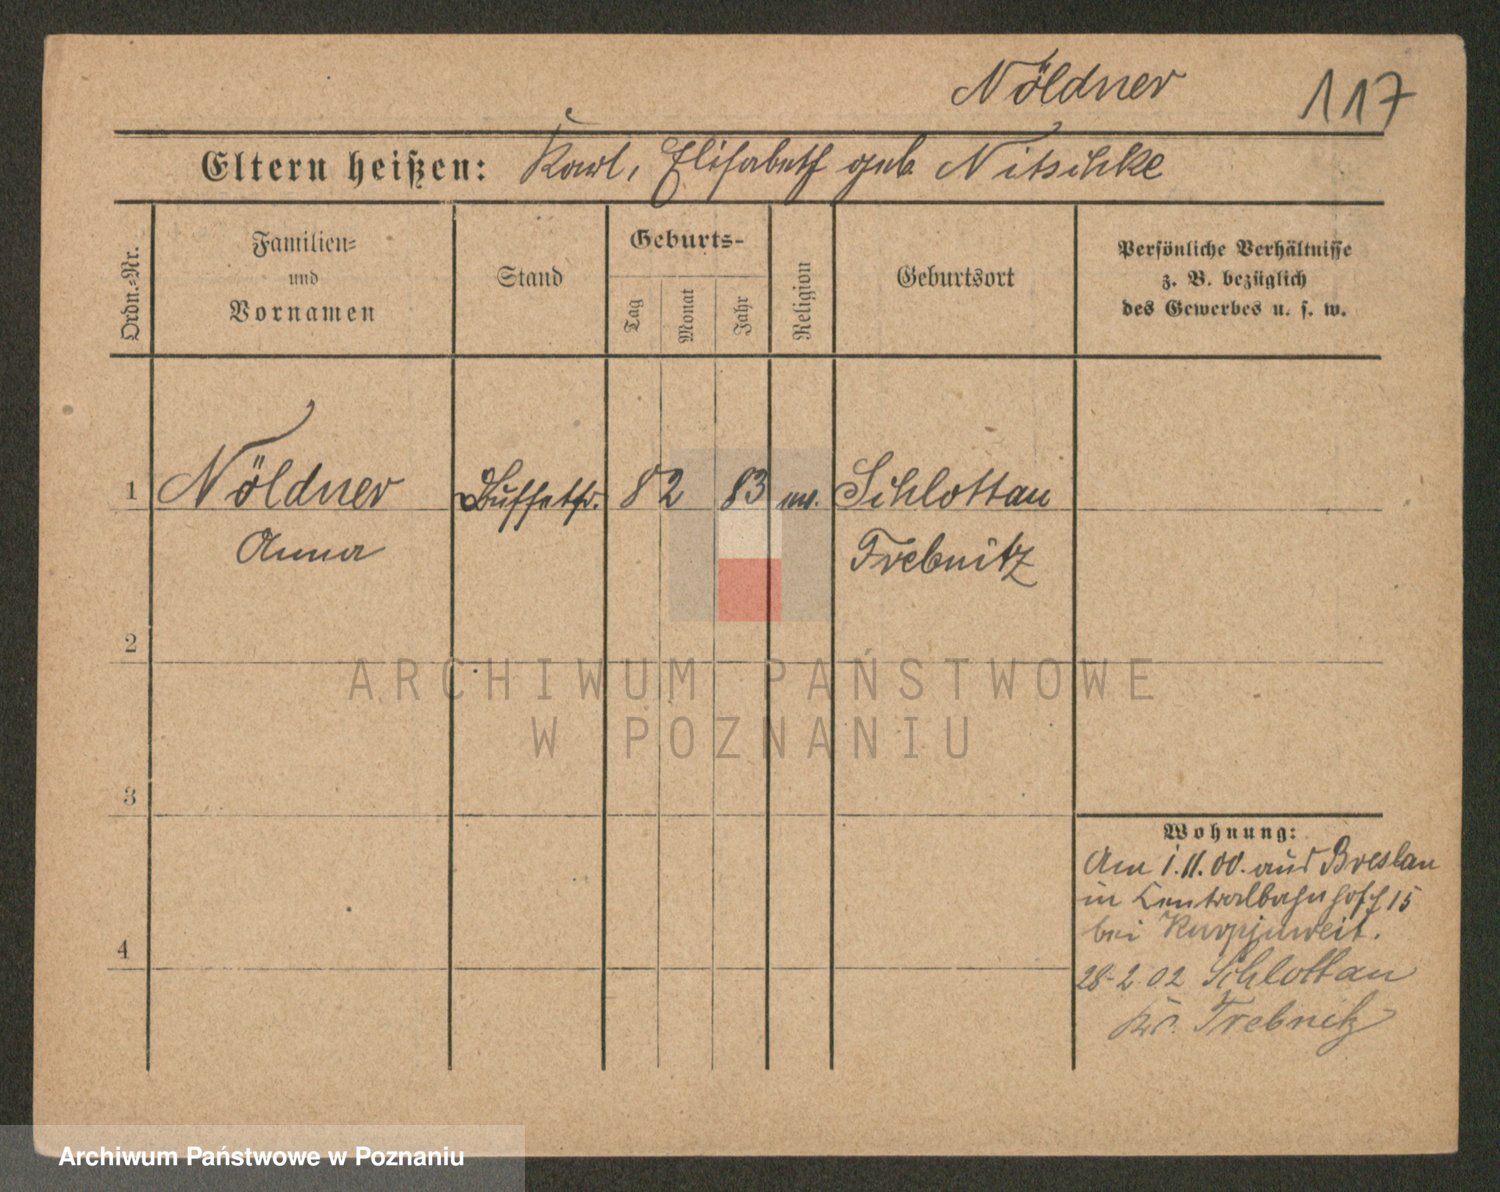 Nöldner 117
Eltern heißen: Karl, Elisabeth geb Nitschke
Ordn.-Nr.
Familien-
und
Vornamen
Stand
Geburts-
Tag
Monat
Jahr
Religion
Geburtsort
Persönliche Verhältnisse
z. B. bezüglich
des Gewerbes u. s. w.
1 Nöldner Buffetfr. 8 2 83 ev. Schlottau
Anna Trebnitz
2
3
4
Wohnung:
Am 1.11.00. aus Breslau
in Centralbahnhoff 15
bei
28-2.02 Schlottau
Kr. Trebnitz
ARCHIWUM PAŃSTWOWE
W POZNANIU
Archiwum Państwowe w Poznaniu